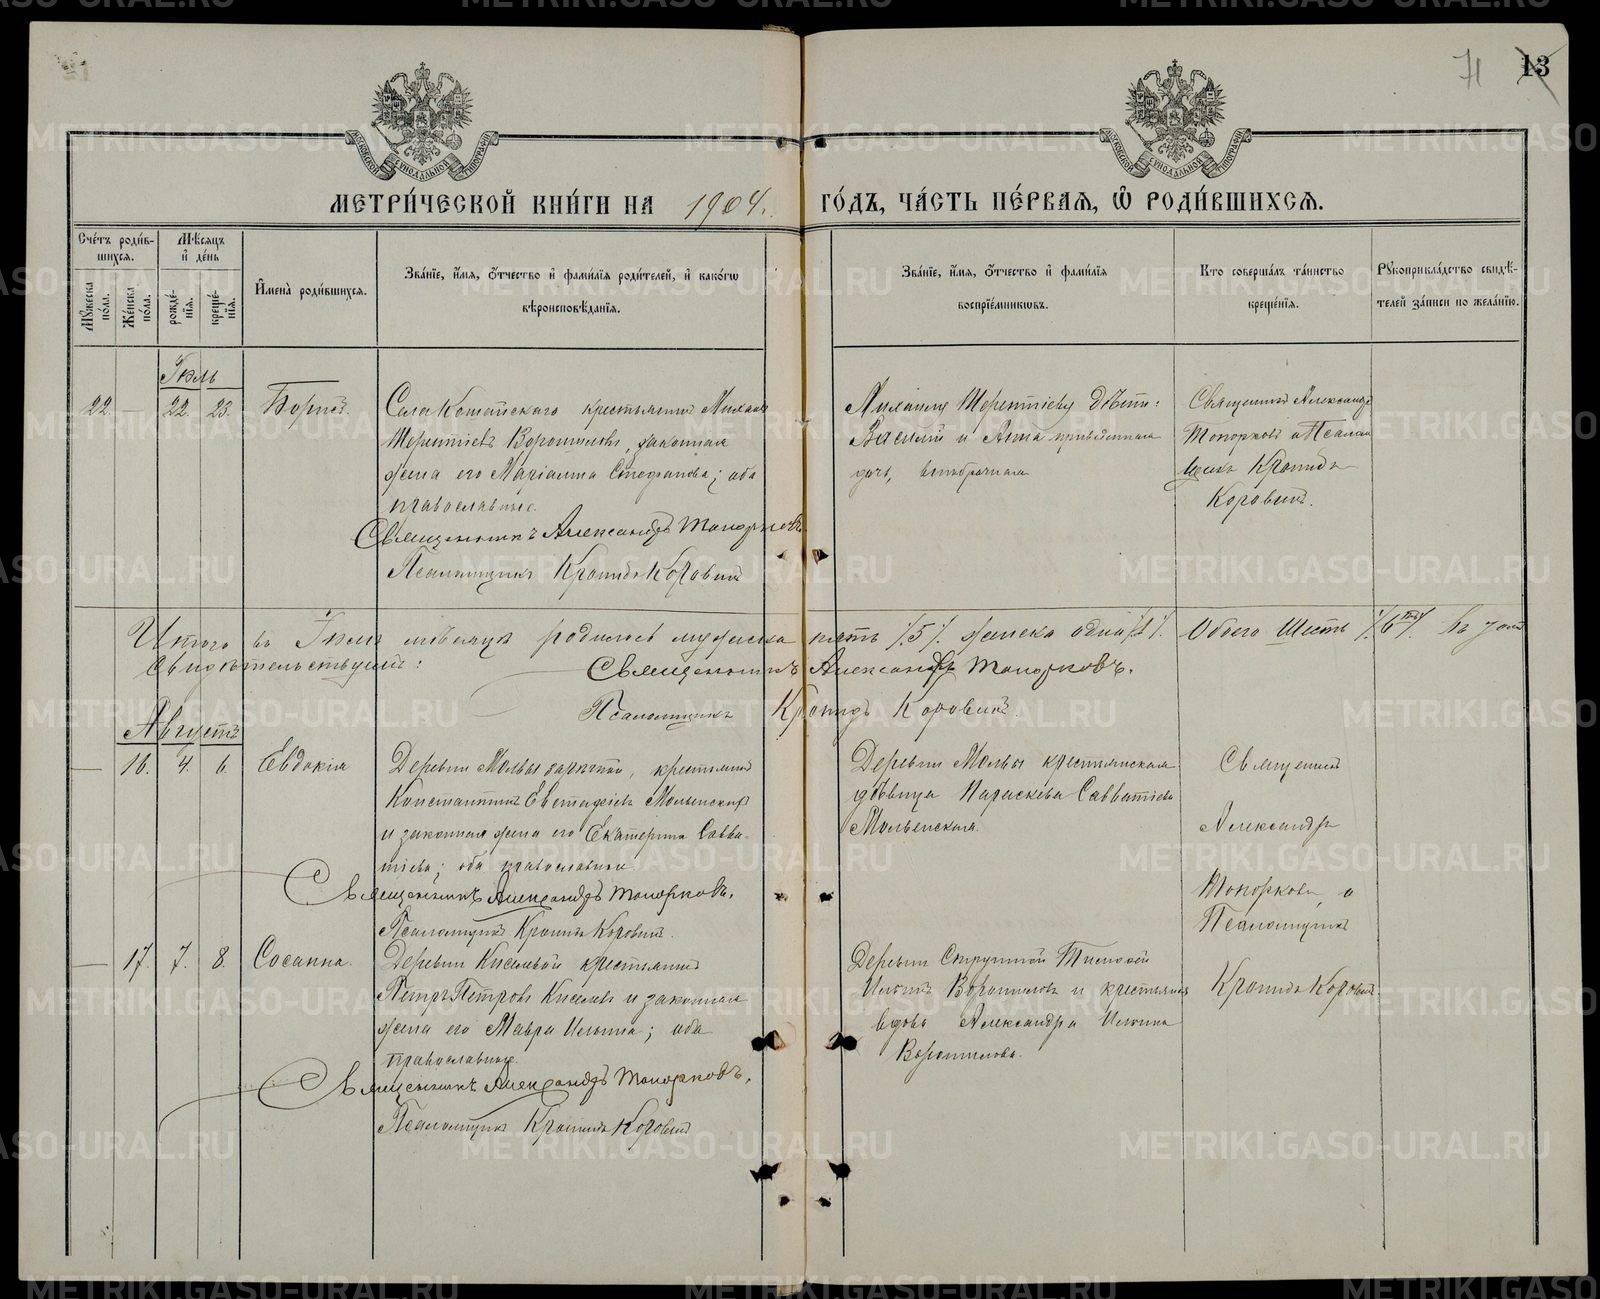 71 13
МЕТРИ́ЧЕСКОЙ КНИ́ГИ НА 1904. ГО́ДЪ, ЧА́СТЬ ПЕ́РВАЯ, Ѡ РОДИ́ВШИХСЯ.
Сче́тъ роди́в-
шихся.
Му́жеска по́ла.
Же́нска по́ла.
Мѣ́сяцъ
и де́нь
рожде́-
нїя.
креще́-
нїя.
И҆мена̀ роди́вшихся.
Зва́нїе, и҆́мя, ѻ҆́тчество и҆ фами́лїя роди́телей, и҆ како́гѡ
вѣроисповѣ́данїя.
Зва́нїе, и҆́мя, ѻ҆́тчество и҆ фами́лїя
воспрїе́мниковъ.
Кто̀ соверша́лъ та́инство
креще́нїя.
Рꙋкоприкла́дство свидѣ́-
телей за́писи по жела́нїю.
Іюль
22. — 22. 23. Борисъ.
Села Кошайскаго крестьянинъ Михаилъ
Терентіевъ Ворошиловъ, законная
жена его Маріанна Стефанова; оба
православные.
Священникъ Александръ Топорковъ.
Псаломщикъ Кронидъ Коровинъ
Михаилу Терентіеву дѣти:
Василій и Анна
дочь,
Священникъ Александръ
Топорковъ и Псалом
щикъ Кронидъ
Коровинъ.
Итого въ Іюлѣ мѣсяцѣ родилось мужеска пять /5/. женска одна /1/. Обоего Шесть /6ть/. въ чемъ
свидѣтельствуемъ:
Священникъ Александръ Топорковъ.
Псаломщикъ Кронидъ Коровинъ.
Августъ
— 16. 4. 6. Евдокія
Деревни Мольвы крестьянинъ
Константинъ Евстафіевъ Мольвенскихъ
и законная жена его Екатерина Савва-
тіева; оба православные
Священникъ Александръ Топорковъ.
Псаломщикъ Кронидъ Коровинъ.
Деревни Мольвы крестьянская
дѣвица Параскева Савватіева
Мольвенская.
Священникъ
Александръ
Топорковъ, и
Псаломщикъ
Кронидъ Коровинъ.
— 17. 7. 8. Сосанна.
Деревни Киселевой крестьянинъ
Петръ Петровъ Киселевъ и законная
жена его Мавра Ильина; оба
православные
Священникъ Александръ Топорковъ.
Псаломщикъ Кронидъ Коровинъ
Деревни
Ворошиловъ и крестьянская
вдова Александра Ильина
Ворошилова.
METRIKI.GASO-URAL.RU